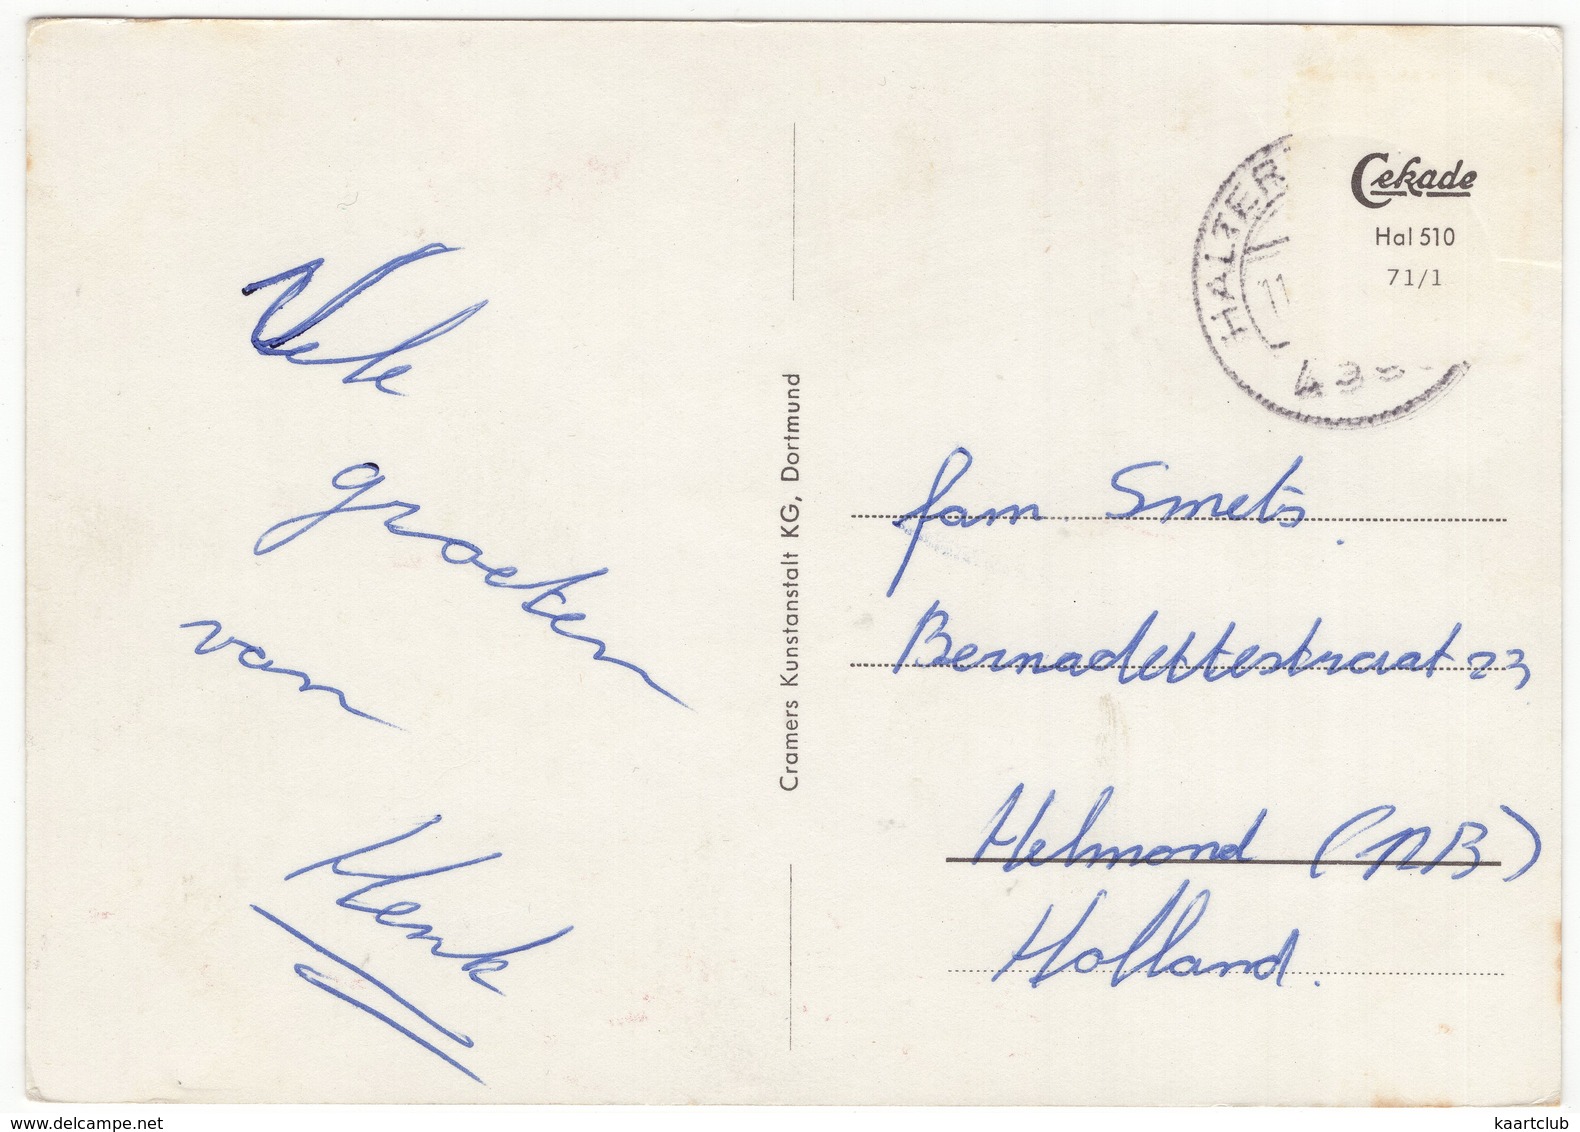 Vele
groeten
van
Henk
Cramers Kunstanstalt KG, Dortmund
HALTER
11
Cekade
Hal 510
71/1
fam. Smets.
Bernadettestraat 23
Helmond (NB)
Holland.
www.delcampe.net
kaartclub